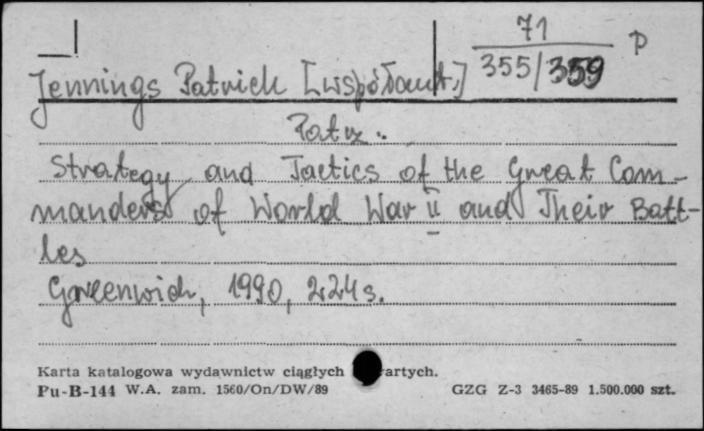 71
355/359 p
Jennings Patrick [współaut.]
Patrz:
Strategy and Tactics of the Great Com-
manders of World War II and Their Batt-
les
Greenwich, 1990, 224 s.
Karta katalogowa wydawnictw ciągłych artych.
Pu-B-144 W.A. zam. 1560/On/DW/89 GZG Z-3 3465-89 1.500.000 szt.